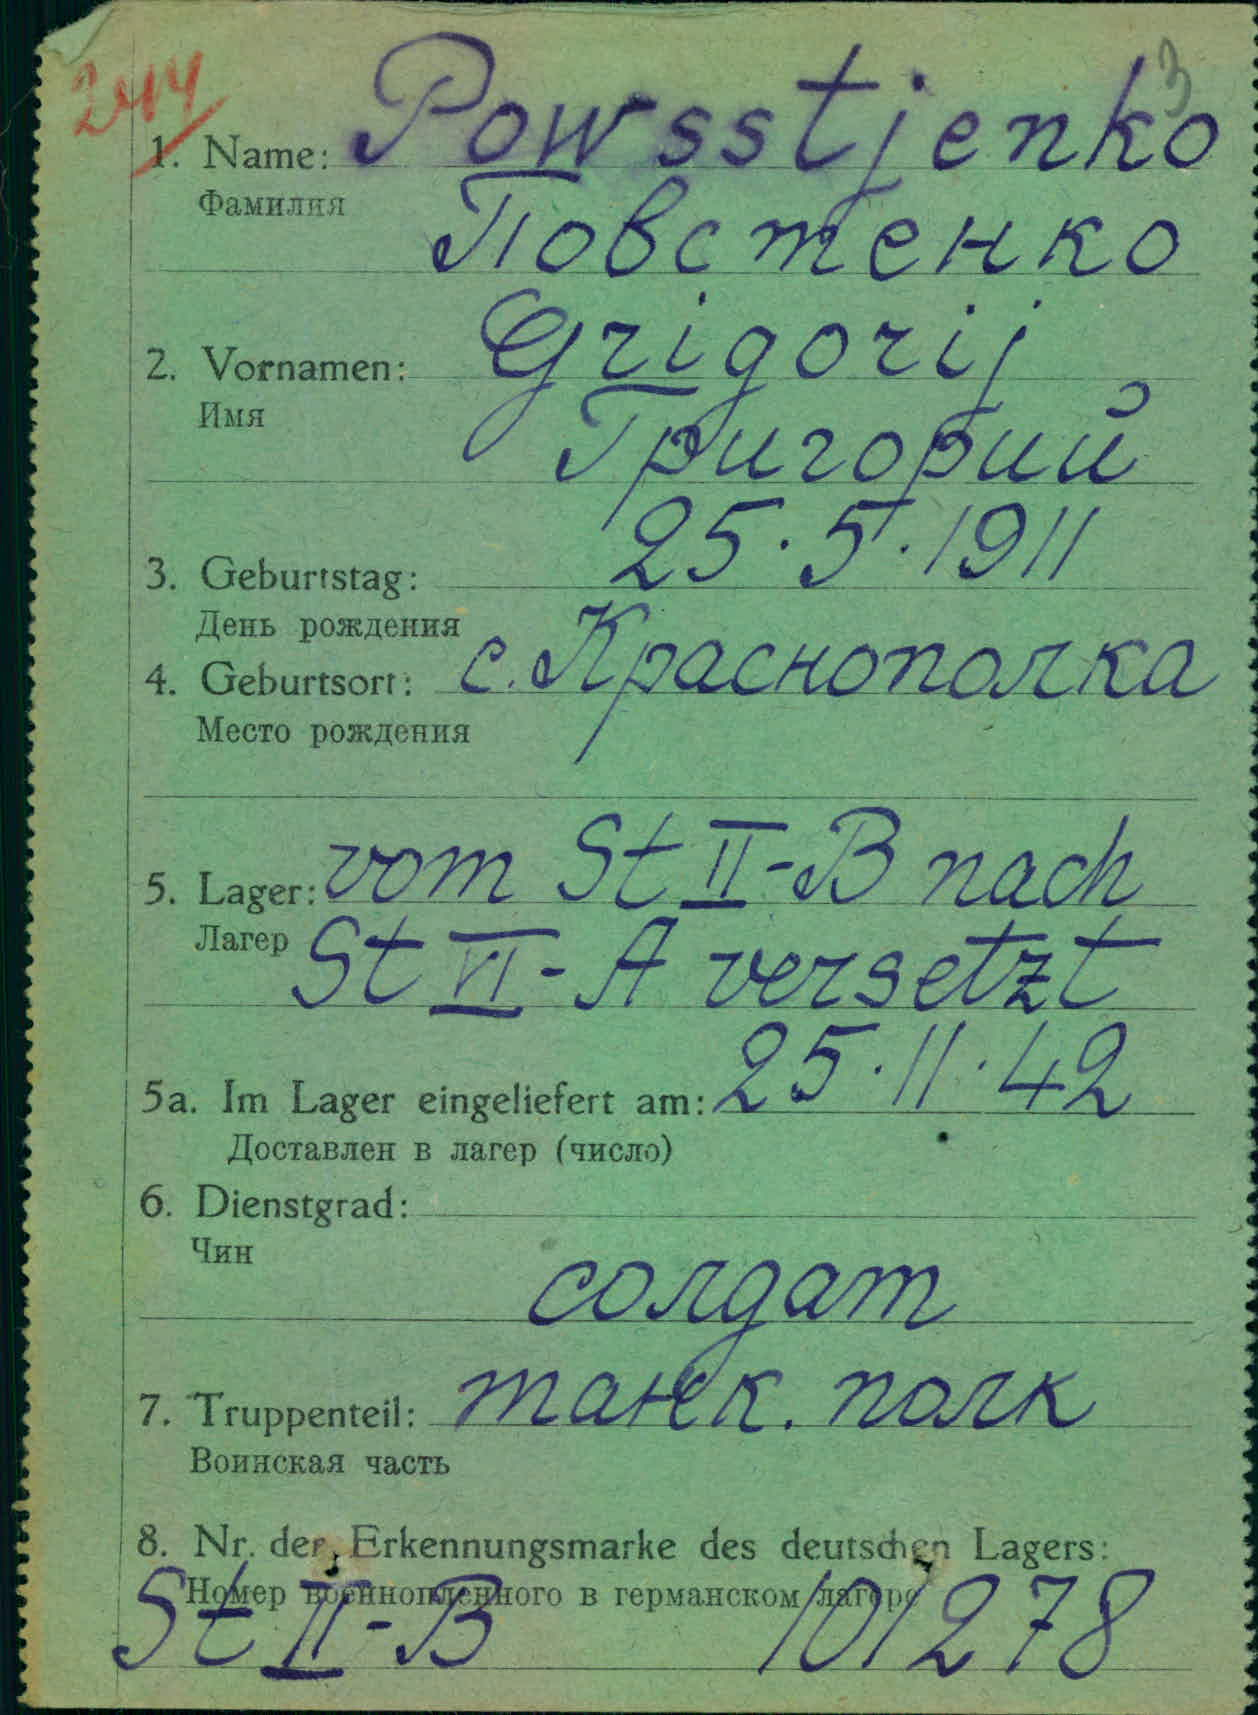 244
3
1. Name: Powsstjenko
Фамилия
Повстенко
2. Vornamen: Grigorij
Имя
Григорий
25.5.1911
3. Geburtstag:
День рождения
4. Geburtsort: с. Краснополка
Место рождения
5. Lager: vom St II-B nach
Лагер St VI-A versetzt
5a. Im Lager eingeliefert am: 25.11.42
Доставлен в лагер (число)
6. Dienstgrad:
Чин
солдат
7. Truppenteil: танк. полк
Воинская часть
8. Nr. der Erkennungsmarke des deutschen Lagers:
Номер военнопленного в германском лагере
St II-B 101278